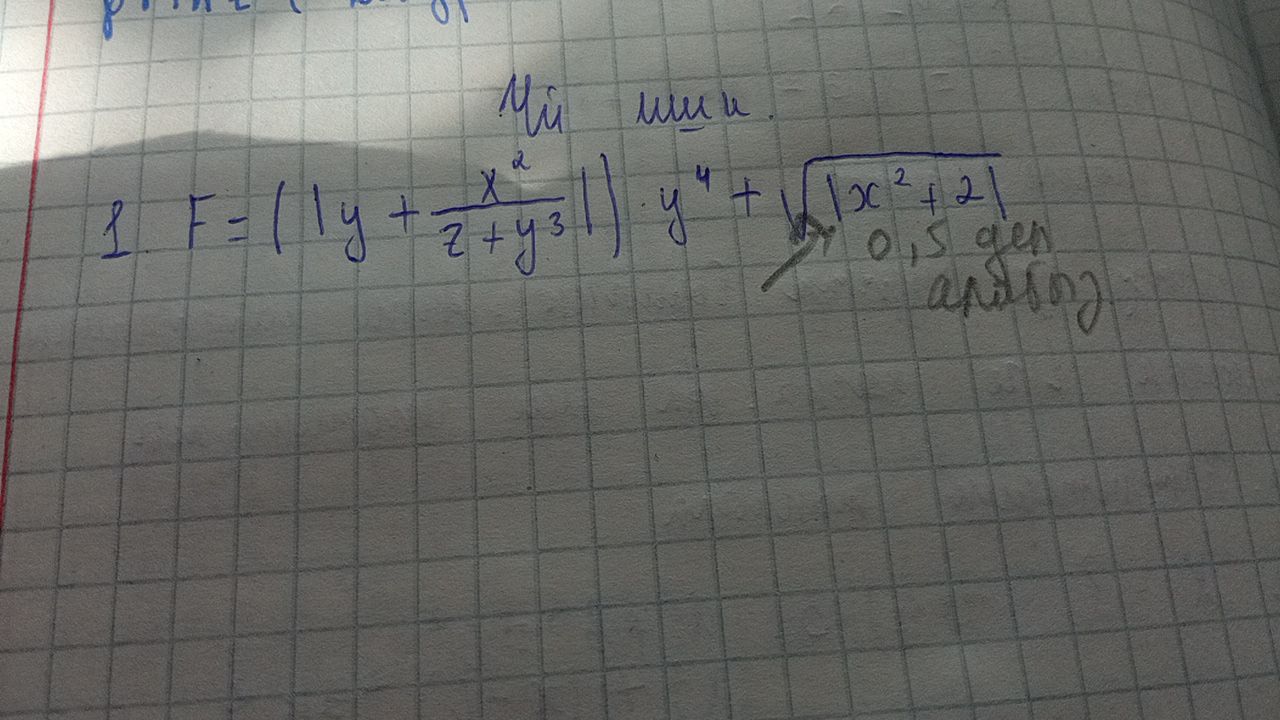 Үй иши.
1. F = (|y + x²/z + y³|) · y⁴ + √|x² + 2|
0,5 деп
алабыз